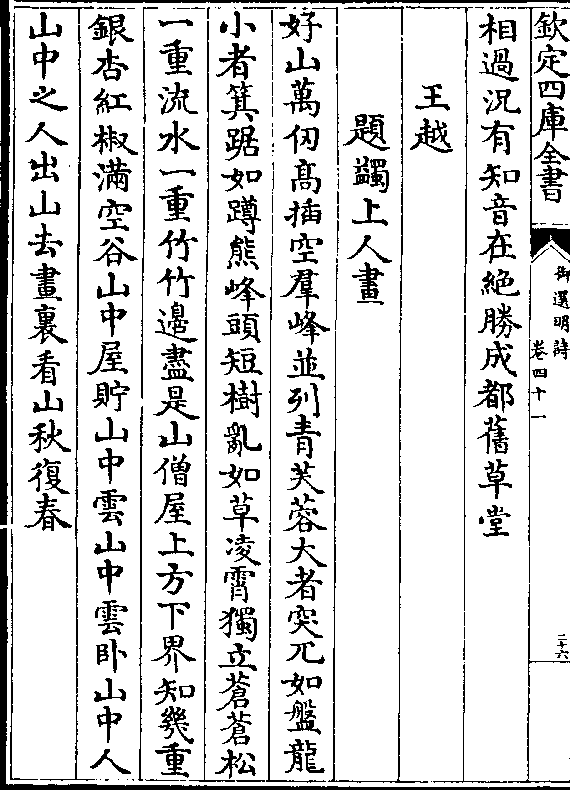 欽定四庫全書
御選明詩
卷四十一
二十六
相過況有知音在絕勝成都舊草堂
王越
題蠲上人畫
好山萬仞髙插空羣峰並列青芙蓉大者突兀如盤龍
小者箕踞如蹲熊峰頭短樹亂如草凌霄獨立蒼蒼松
一重流水一重竹竹邉盡是山僧屋上方下界知幾重
銀杏紅椒滿空谷山中屋貯山中雲山中雲卧山中人
山中之人出山去畫裏看山秋復春